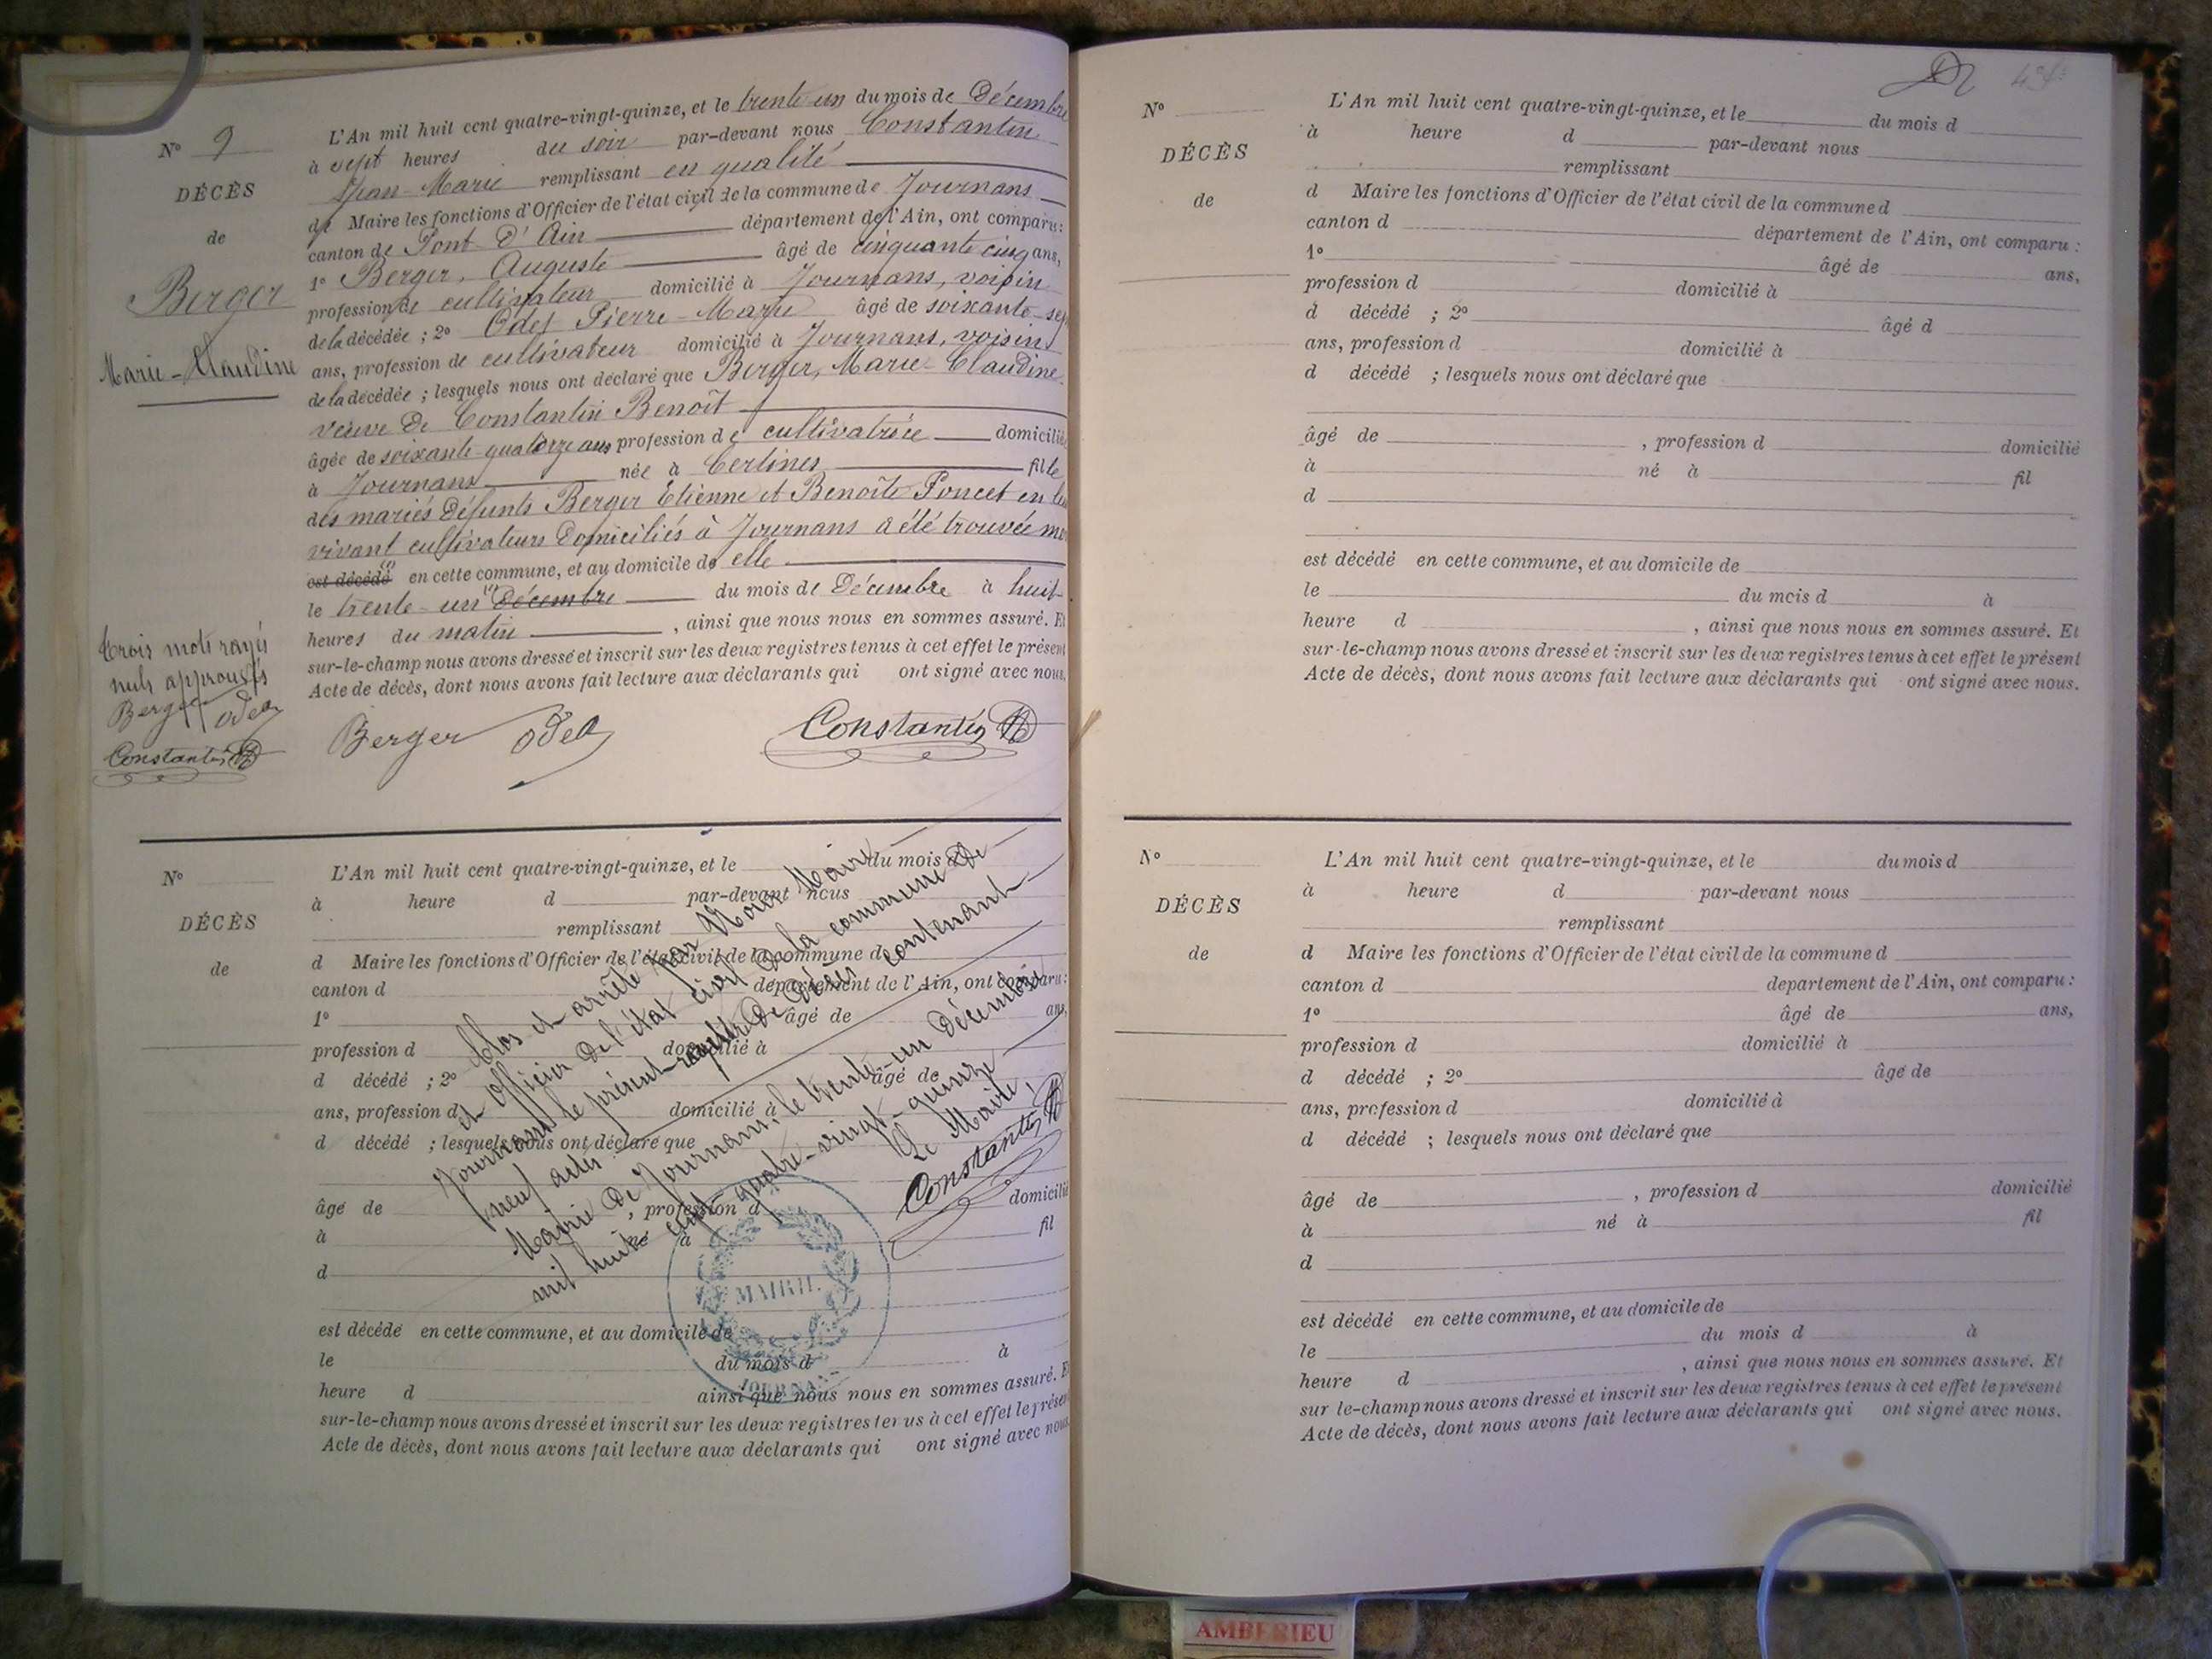 N° 9
DÉCÈS
de
Berger
Marie-Claudine
L'An mil huit cent quatre-vingt-quinze, et le trente un du mois de Décembre
à sept heures du soir par-devant nous Constantin
Jean-Marie remplissant en qualité
de Maire les fonctions d'Officier de l'état civil de la commune de Journans
canton de Pont-d'Ain département de l'Ain, ont comparu :
1° Berger, Auguste âgé de cinquante cinq ans,
profession de cultivateur domicilié à Journans, voisin
de la décédée ; 2° Odet Pierre-Marie âgé de soixante-sept
ans, profession de cultivateur domicilié à Journans, voisin
de la décédée ; lesquels nous ont déclaré que Berger, Marie-Claudine
veuve de Constantin Benoît
âgée de soixante-quatorze ans profession de cultivatrice domicilié
à Journans née à Certines fille
des mariés défunts Berger Etienne et Benoîte Poncet en leu
vivant cultivateurs domiciliés à Journans a été trouvée mo
est décédé en cette commune, et au domicile de elle
le trente-un Décembre du mois de Décembre à huit
heures du matin , ainsi que nous nous en sommes assuré. Et
sur-le-champ nous avons dressé et inscrit sur les deux registres tenus à cet effet le présent
Acte de décès, dont nous avons fait lecture aux déclarants qui ont signé avec nous.
Trois mots rayés
nuls approuvés
Berger Odet
Constantin
Berger Odet Constantin
N°
DÉCÈS
de
L'An mil huit cent quatre-vingt-quinze, et le du mois d
à heure d par-devant nous
remplissant
d Maire les fonctions d'Officier de l'état civil de la commune d
canton d département de l'Ain, ont comparu :
1° âgé de ans,
profession d domicilié à
d décédé ; 2° âgé de
ans, profession d domicilié à
d décédé ; lesquels nous ont déclaré que
âgé de , profession d domicilié
à né à fil
d
est décédé en cette commune, et au domicile de
le du mois d à
heure d ainsi que nous nous en sommes assuré. E
sur-le-champ nous avons dressé et inscrit sur les deux registres tenus à cet effet le présen
Acte de décès, dont nous avons fait lecture aux déclarants qui ont signé avec nous
Clos et arrêté par Nous Maire
et Officier de l'état civil de la commune de
Journans le présent registre de Décès contenant
neuf actes
Mairie de Journans, le trente-un décembre
mil huit cent quatre-vingt-quinze
Le Maire
Constantin
MAIRIE
JOURNANS
N°
DÉCÈS
de
L'An mil huit cent quatre-vingt-quinze, et le du mois d
à heure d par-devant nous
remplissant
d Maire les fonctions d'Officier de l'état civil de la commune d
canton d département de l'Ain, ont comparu :
1° âgé de ans,
profession d domicilié à
d décédé ; 2° âgé d
ans, profession d domicilié à
d décédé ; lesquels nous ont déclaré que
âgé de , profession d domicilié
à né à fil
d
est décédé en cette commune, et au domicile de
le du mois d à
heure d , ainsi que nous nous en sommes assuré. Et
sur-le-champ nous avons dressé et inscrit sur les deux registres tenus à cet effet le présent
Acte de décès, dont nous avons fait lecture aux déclarants qui ont signé avec nous.
N°
DÉCÈS
de
L'An mil huit cent quatre-vingt-quinze, et le du mois d
à heure d par-devant nous
remplissant
d Maire les fonctions d'Officier de l'état civil de la commune d
canton d departement de l'Ain, ont comparu :
1° âgé de ans,
profession d domicilié à
d décédé ; 2° âgé de
ans, profession d domicilié à
d décédé ; lesquels nous ont déclaré que
âgé de , profession d domicilié
à né à fil
d
est décédé en cette commune, et au domicile de
le du mois d à
heure d , ainsi que nous nous en sommes assuré. Et
sur le-champ nous avons dressé et inscrit sur les deux registres tenus à cet effet le présent
Acte de décès, dont nous avons fait lecture aux déclarants qui ont signé avec nous.
AMBERIEU